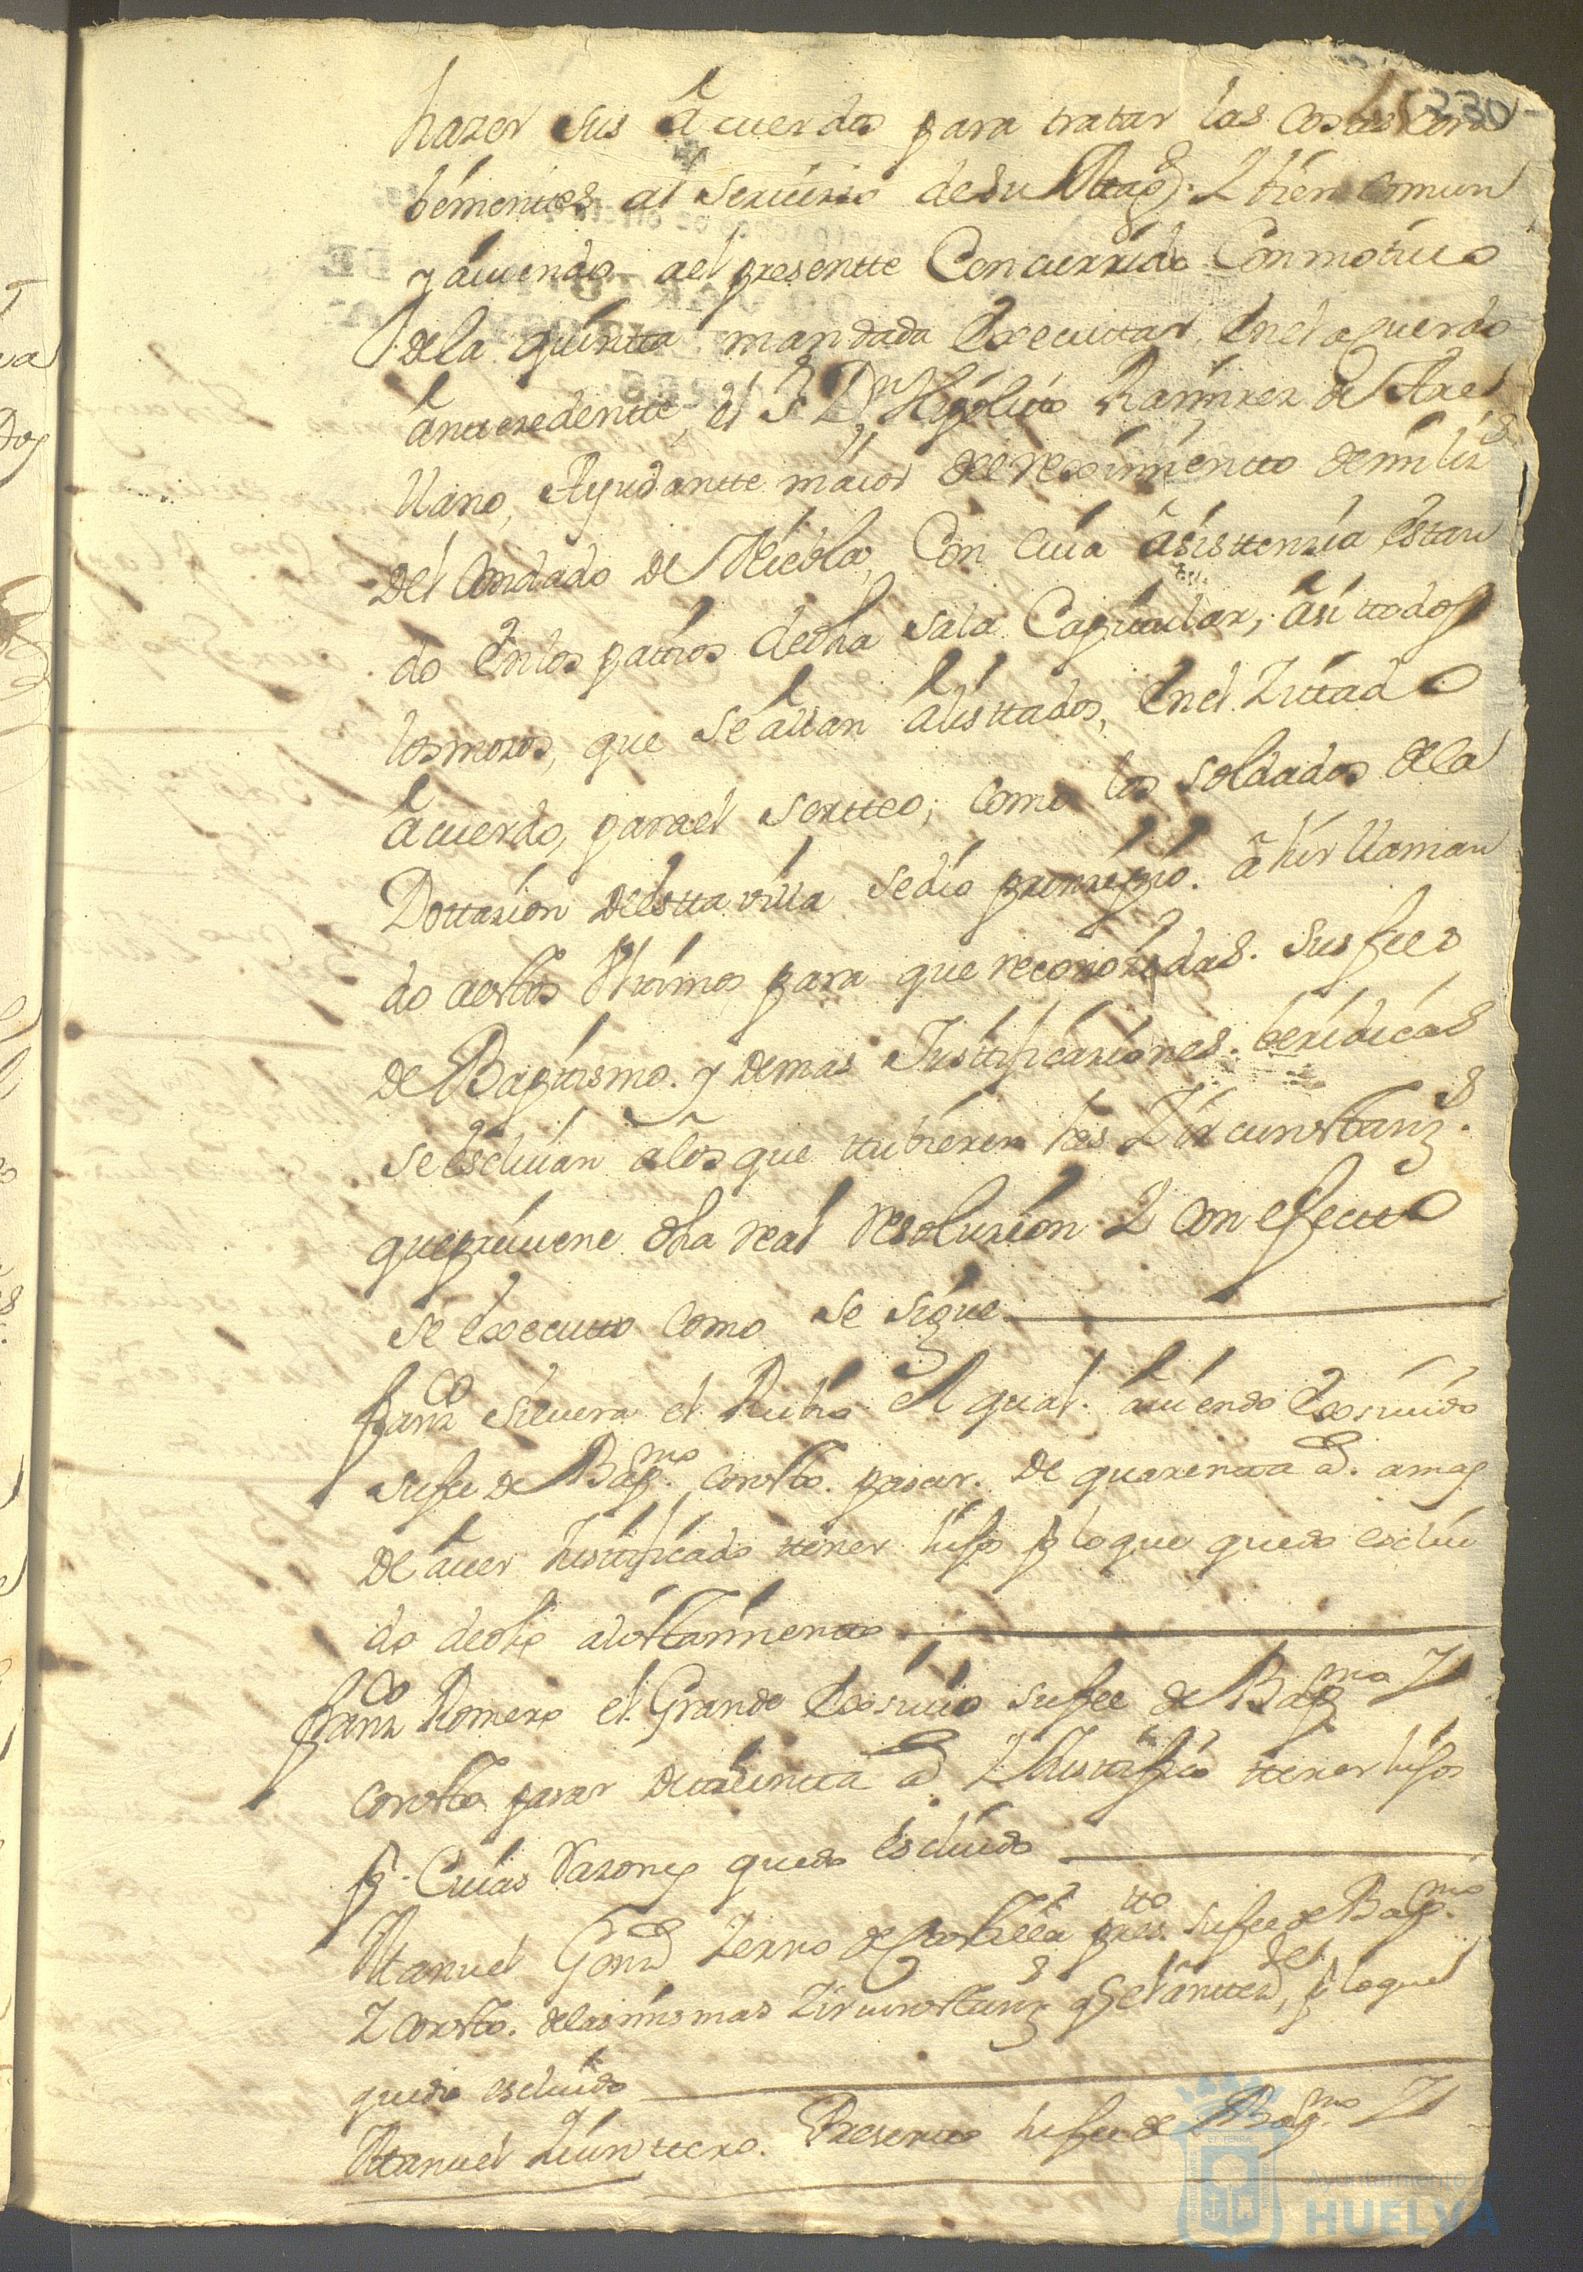 330
hazer sus acuerdos para tratar las cosas com
benientes al servizio de su Magd. Y bien comun
y aviendo al presentte Concurrido Con motivo
de la quintta mandada Executtar, En el aquerdo
anttezedentte, el Sr. Dn. Hipolito Ramirez de Arel
llano, Ayudantte maior del reximientto de miliz.s
del Condado de Niebla, Con cuia asisttenzia, estan
do En los patios de dha sala Capitular, asi ttodos
los mozos, que se allan alisttados, En el Zittado
acuerdo, para el sortteo; como los soldados de la
Dottazion de estta villa se dio prinzipio. a hir llaman
do a estos Vttimos para que reconozidas. sus fees
de Baptismo. y demas Justificaziones. beridicas
se escluian a los que ttubieren las Zircunsttanz.s
que previene dha real resoluzion Y con efectto
se executto como se sigue
Franzco Silvera el Rubio el qual. aviendo Exsivido
su fee de Bapmo. constto. pasar. de quarentta as. a mas
de aver Justificado ttener hijo p lo que quedo esclui
do de dho alisttamientto
Franzco Romero el Grande Exsivio su fee de Bapmo Y
constto pasar de quarentta as Y Justtifico ttener hijos
p. Cuias Razones quedo escluido
Manuel Gonz Yerno de Costtilla prestto su fee de Bapmo.
Y constto. de las mismas Zircunsttanz.s q el del antted, p lo que
quedo escluido
Manuel Quinttero. Presentto su fee de Bapmo. Y
Ayuntamiento de
HUELVA